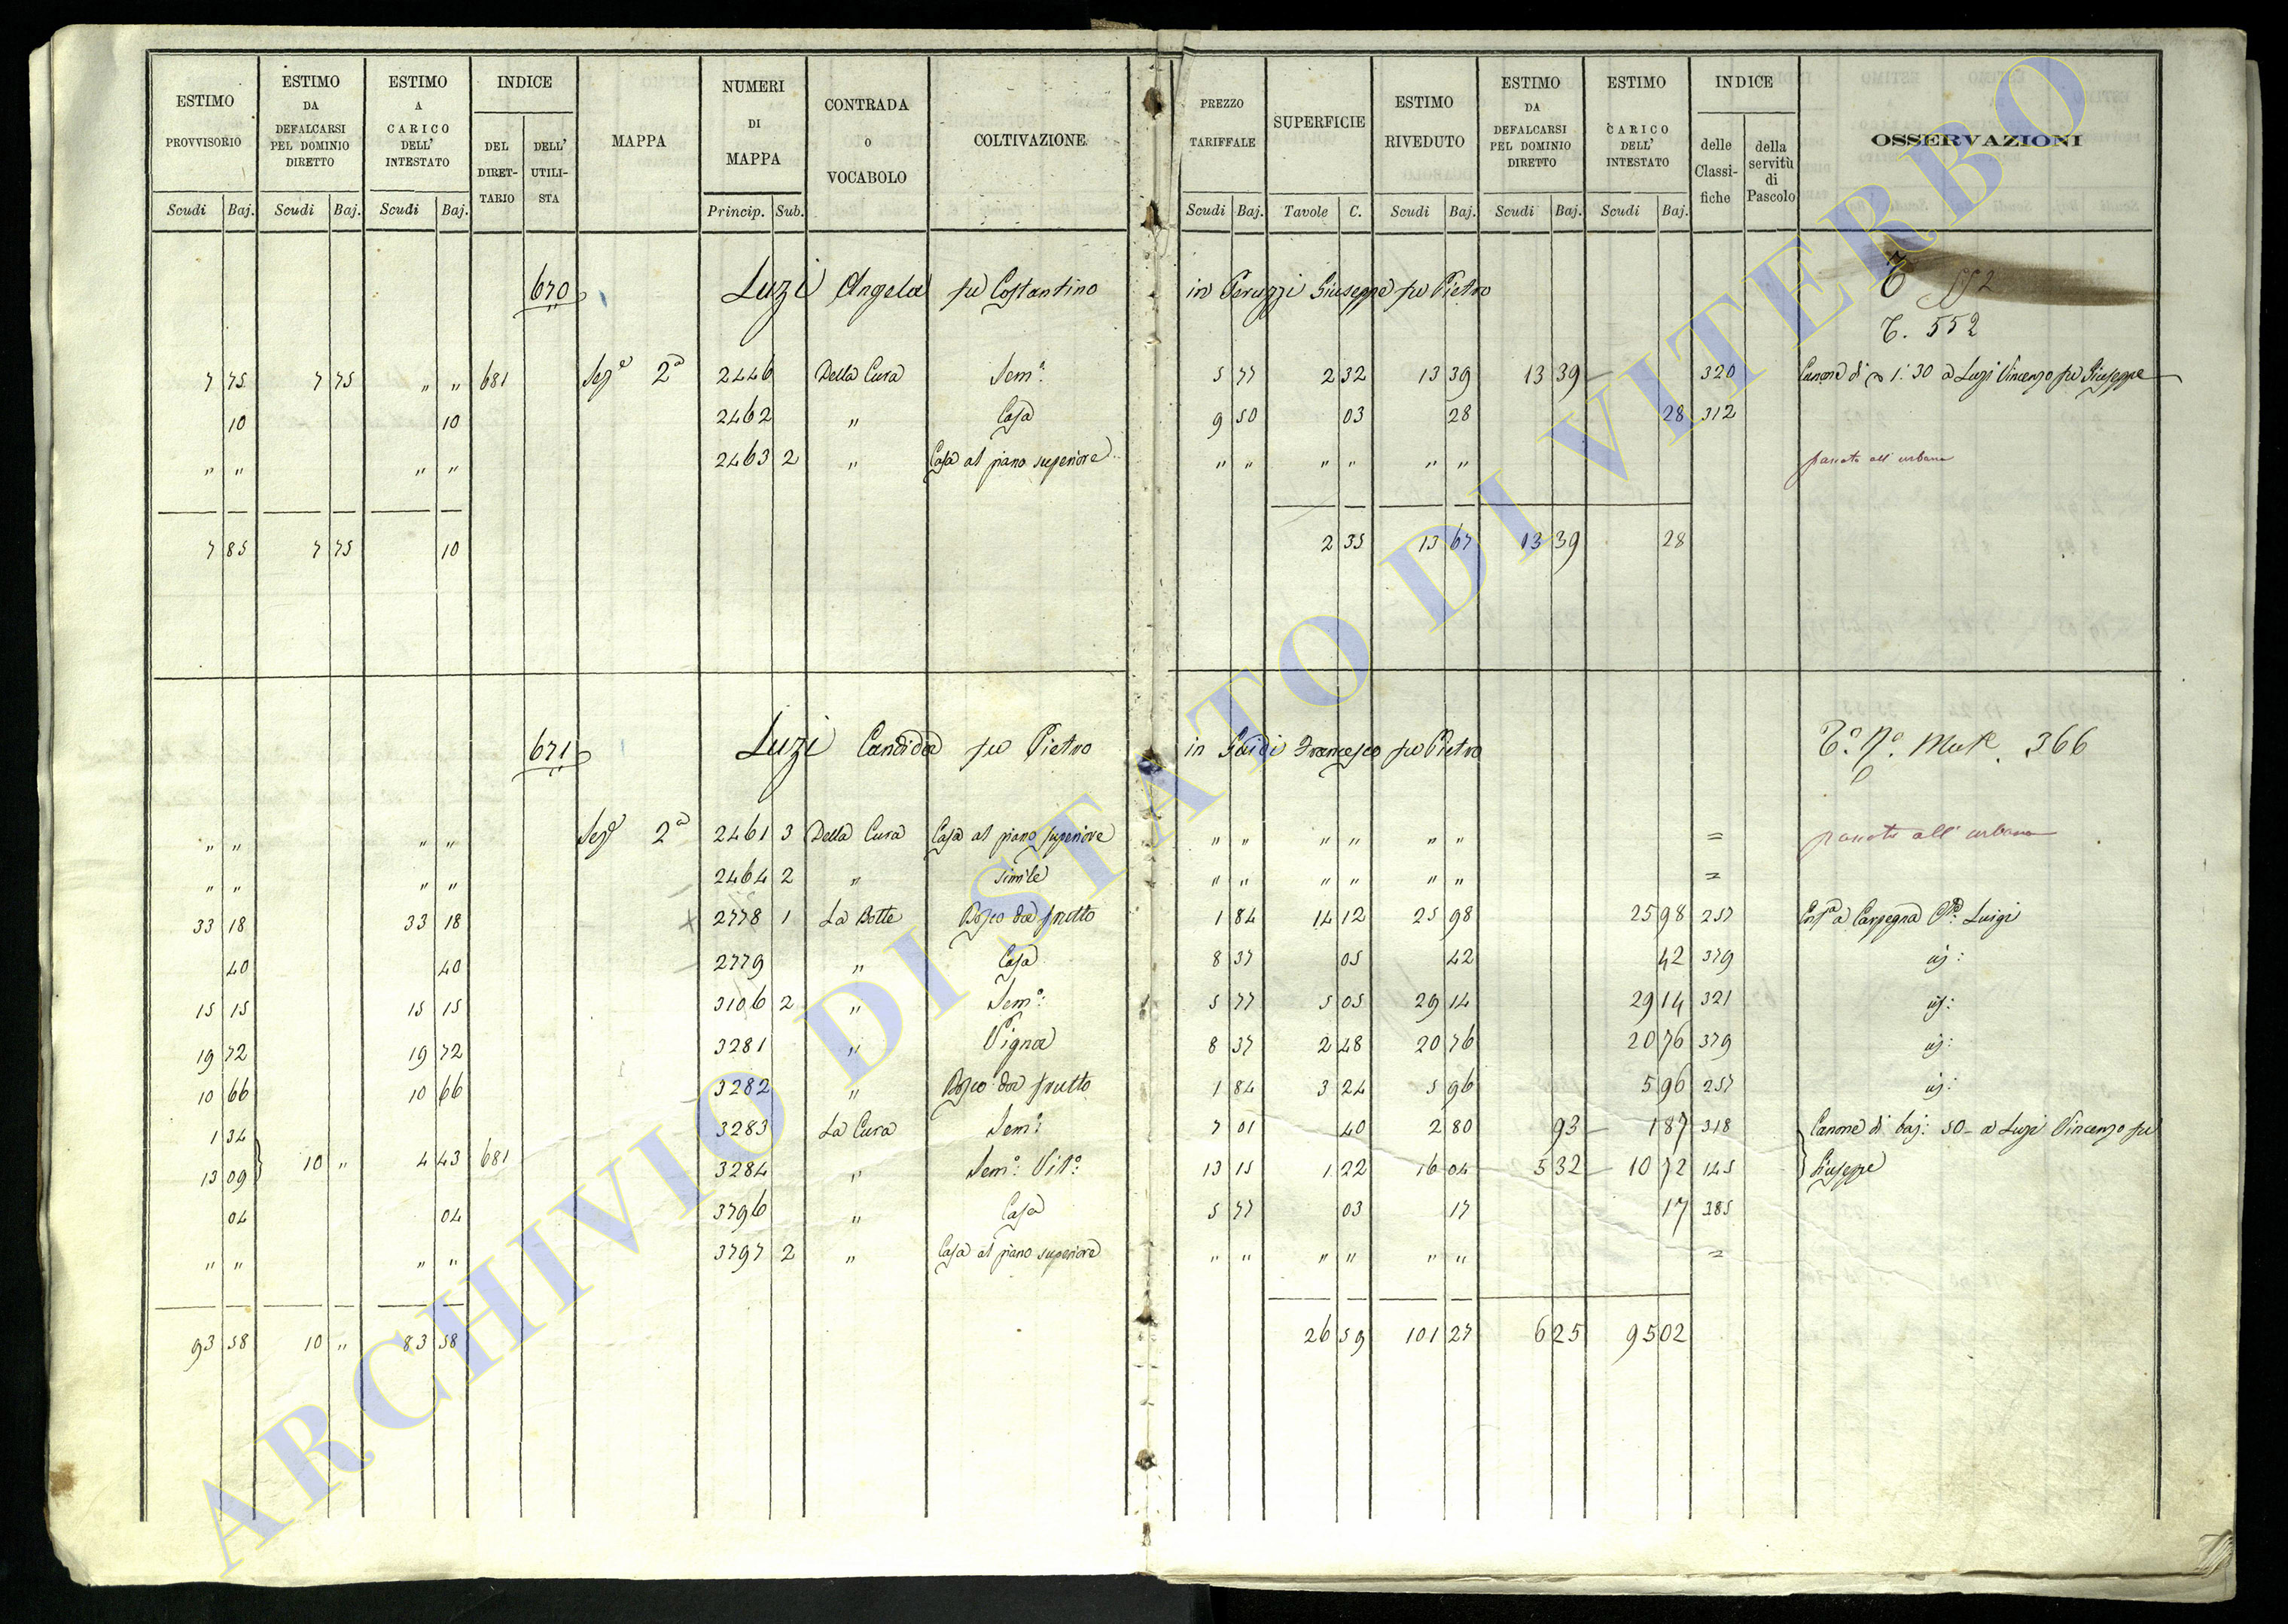 ESTIMO PROVVISORIO
ESTIMO DA DEFALCARSI PEL DOMINIO DIRETTO
ESTIMO A CARICO DELL' INTESTATO
INDICE
DEL DIRETTARIO
DELL' UTILISTA
MAPPA
NUMERI DI MAPPA
CONTRADA o VOCABOLO
COLTIVAZIONE
PREZZO TARIFFALE
SUPERFICIE
ESTIMO RIVEDUTO
ESTIMO DA DEFALCARSI PEL DOMINIO DIRETTO
ESTIMO CARICO DELL' INTESTATO
INDICE
delle Classifiche
della servitù di Pascolo
OSSERVAZIONI
Scudi Baj. Scudi Baj. Scudi Baj. Princip. Sub. Scudi Baj. Tavole C. Scudi Baj. Scudi Baj. Scudi Baj.
670 Luzi Angela fu Costantino in Peruzzi Giuseppe fu Pietro
T. 552
7 75 7 75 " " 681 Sez.e 2a 2446 Della Cura Sem.o 5 77 2 32 13 39 13 39 — 320 Canone di 1:30 a Luzi Vincenzo fu Giuseppe
10 10 2462 " Casa 9 50 03 28 28 312
" " " " 2463 2 " Casa al piano superiore " " " " " " passato all' urbano
7 85 7 75 10 2 35 13 67 13 39 28
671 Luzi Candida fu Pietro in Guidi Francesco fu Pietro 366
" " " " Sez.e 2a 2461 3 Della Cura Casa al piano superiore " " " " " " = passato all' urbano
" " " " 2464 2 " simile " " " " " " =
33 18 33 18 2778 1 La Botte Bosco da frutto 1 84 14 12 25 98 25 98 257 Carpegna Luigi
40 40 2779 " Casa 8 37 05 42 42 379
15 15 15 15 3106 2 " Sem.o 5 77 5 05 29 14 29 14 321
19 72 19 72 3281 " Vigna 8 37 2 48 20 76 20 76 379
10 66 10 66 3282 " Bosco da frutto 1 84 3 24 5 96 5 96 257
1 34 3283 La Cura Sem.o 7 01 40 2 80 93 — 1 87 318 Canone di baj: 50 a Luzi Vincenzo fu
13 09 10 " 4 43 681 3284 " Sem.o Vit.o 13 15 1 22 16 04 5 32 — 10 72 145 Giuseppe
04 04 3796 " Casa 5 77 03 17 17 385
" " " " 3797 2 " Casa al piano superiore " " " " " " =
93 58 10 " 83 58 26 59 101 27 6 25 95 02
ARCHIVIO DI STATO DI VITERBO